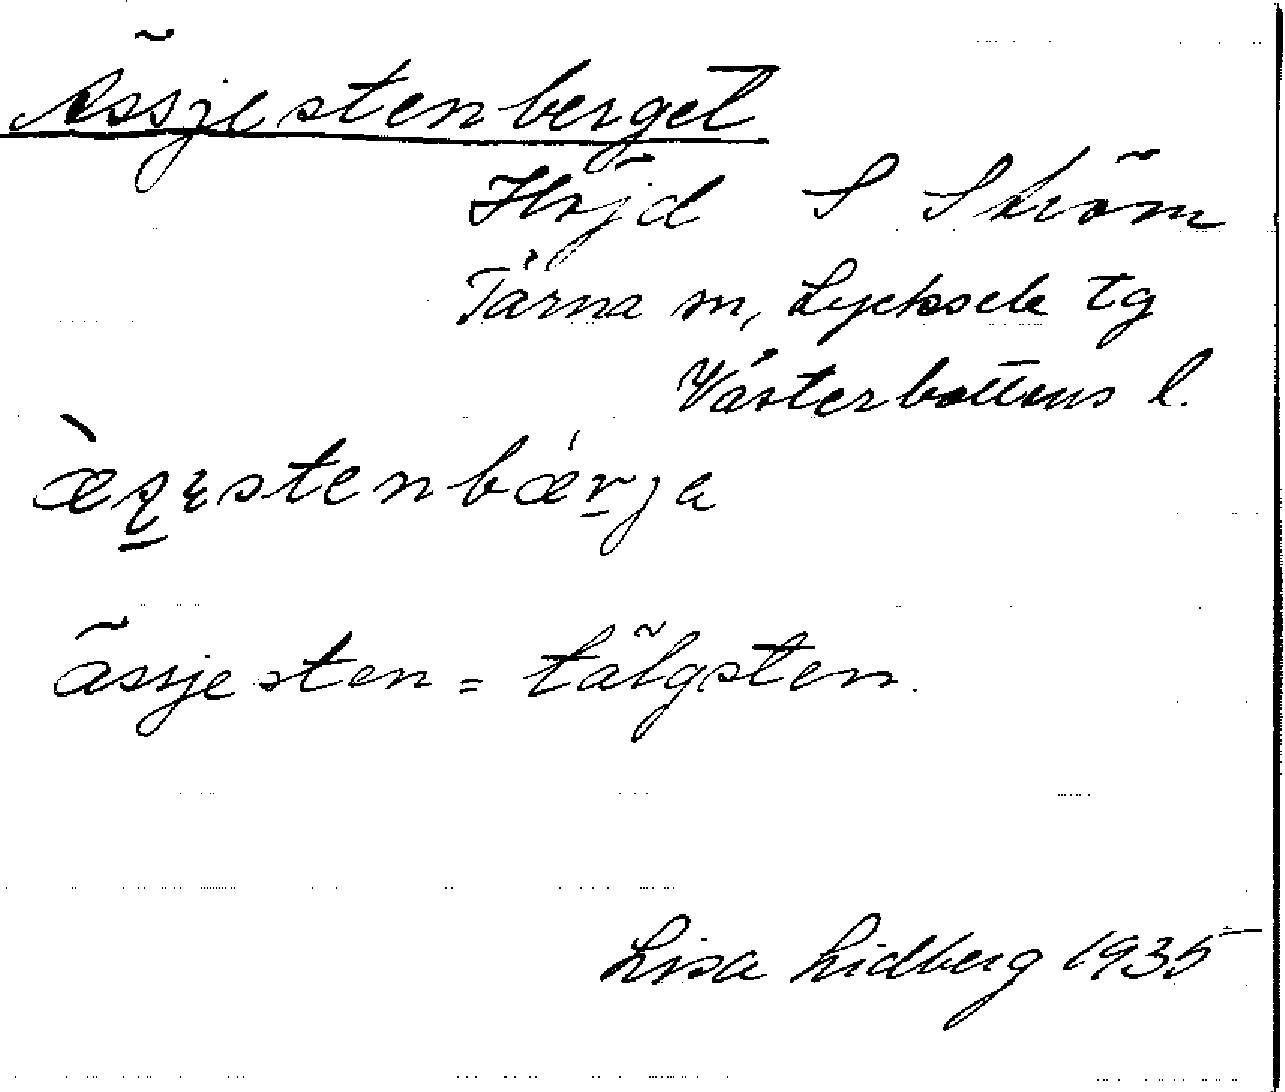 Ässjestenberget
Höjd S Ström
Tärna sn, Lycksele tg
Västerbottens l.
ässjesten = täljsten.
Lisa Lidberg 1935